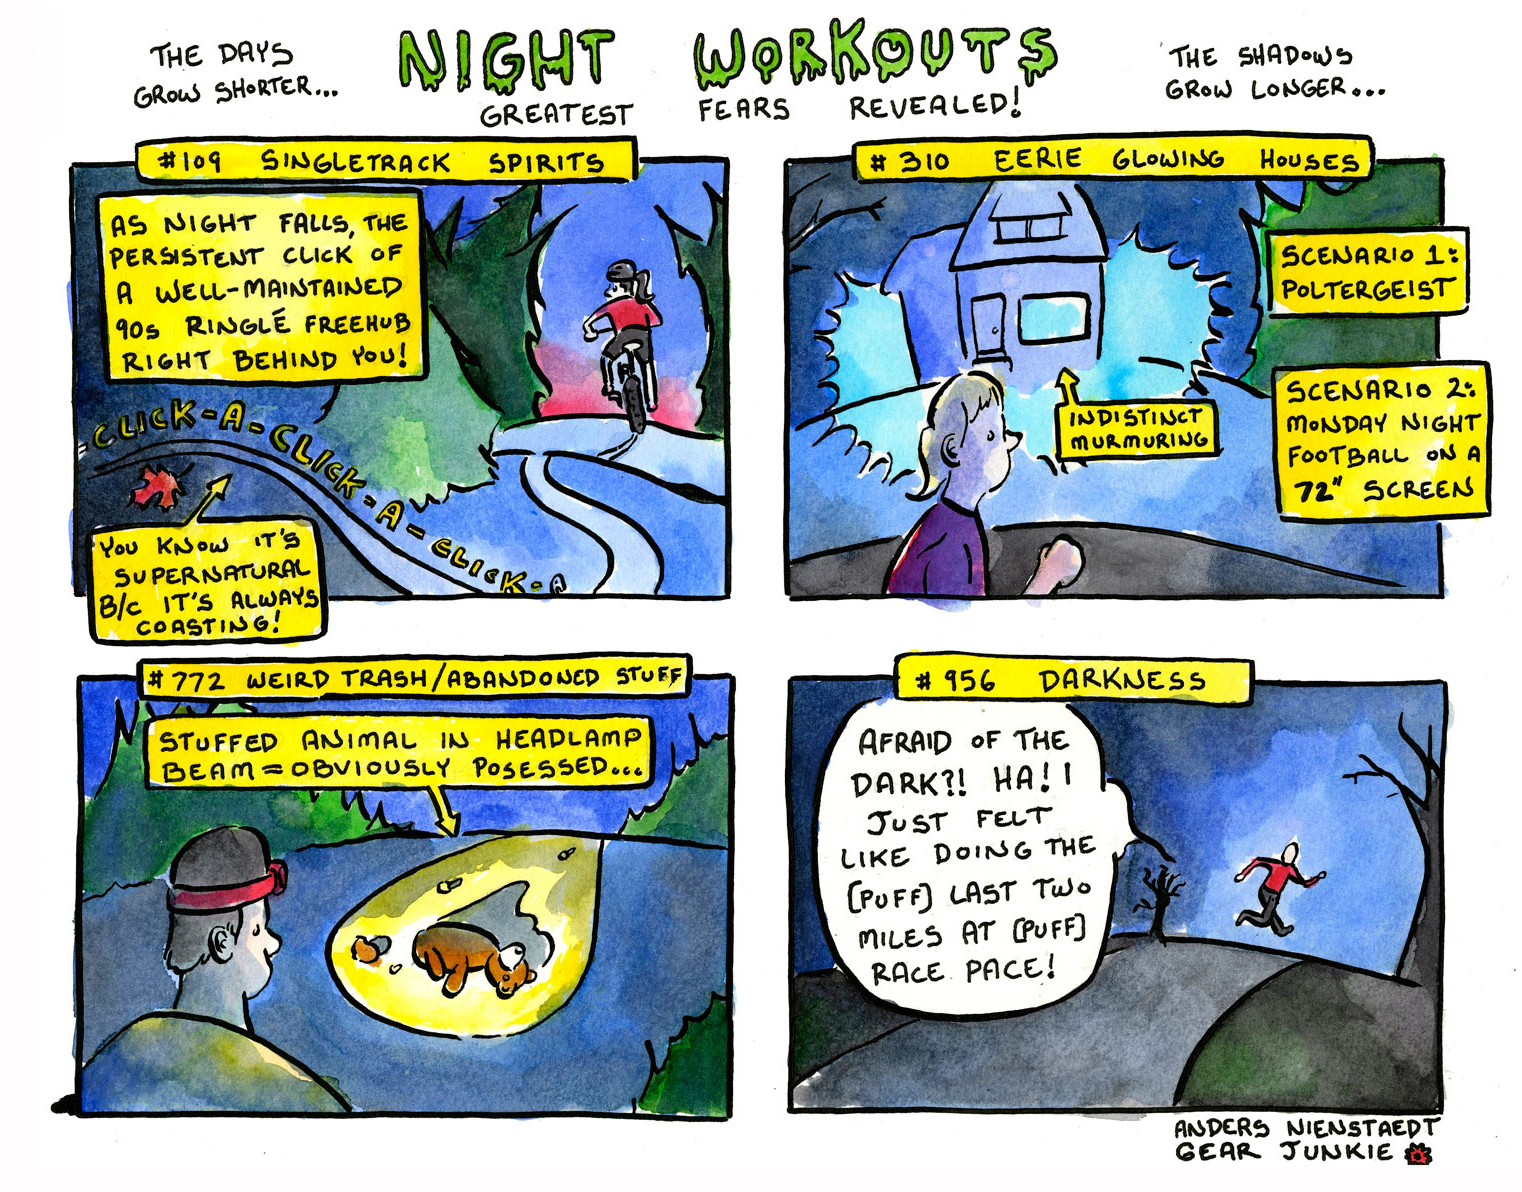 THE DAYS
GROW SHORTER...
NIGHT WORKOUTS
GREATEST FEARS REVEALED!
THE SHADOWS
GROW LONGER...
#109 SINGLETRACK SPIRITS
AS NIGHT FALLS, THE
PERSISTENT CLICK OF
A WELL-MAINTAINED
90s RINGLÉ FREEHUB
RIGHT BEHIND YOU!
CLICK-A-CLICK-A-CLICK-A-CLICK-A
YOU KNOW IT'S
SUPERNATURAL
B/C IT'S ALWAYS
COASTING!
#310 EERIE GLOWING HOUSES
SCENARIO 1:
POLTERGEIST
SCENARIO 2:
MONDAY NIGHT
FOOTBALL ON A
72" SCREEN
INDISTINCT
MURMURING
#772 WEIRD TRASH/ABANDONED STUFF
STUFFED ANIMAL IN HEADLAMP
BEAM=OBVIOUSLY POSESSED...
#956 DARKNESS
AFRAID OF THE
DARK?! HA! I
JUST FELT
LIKE DOING THE
[PUFF] LAST TWO
MILES AT [PUFF]
RACE PACE!
ANDERS NIENSTAEDT
GEAR JUNKIE